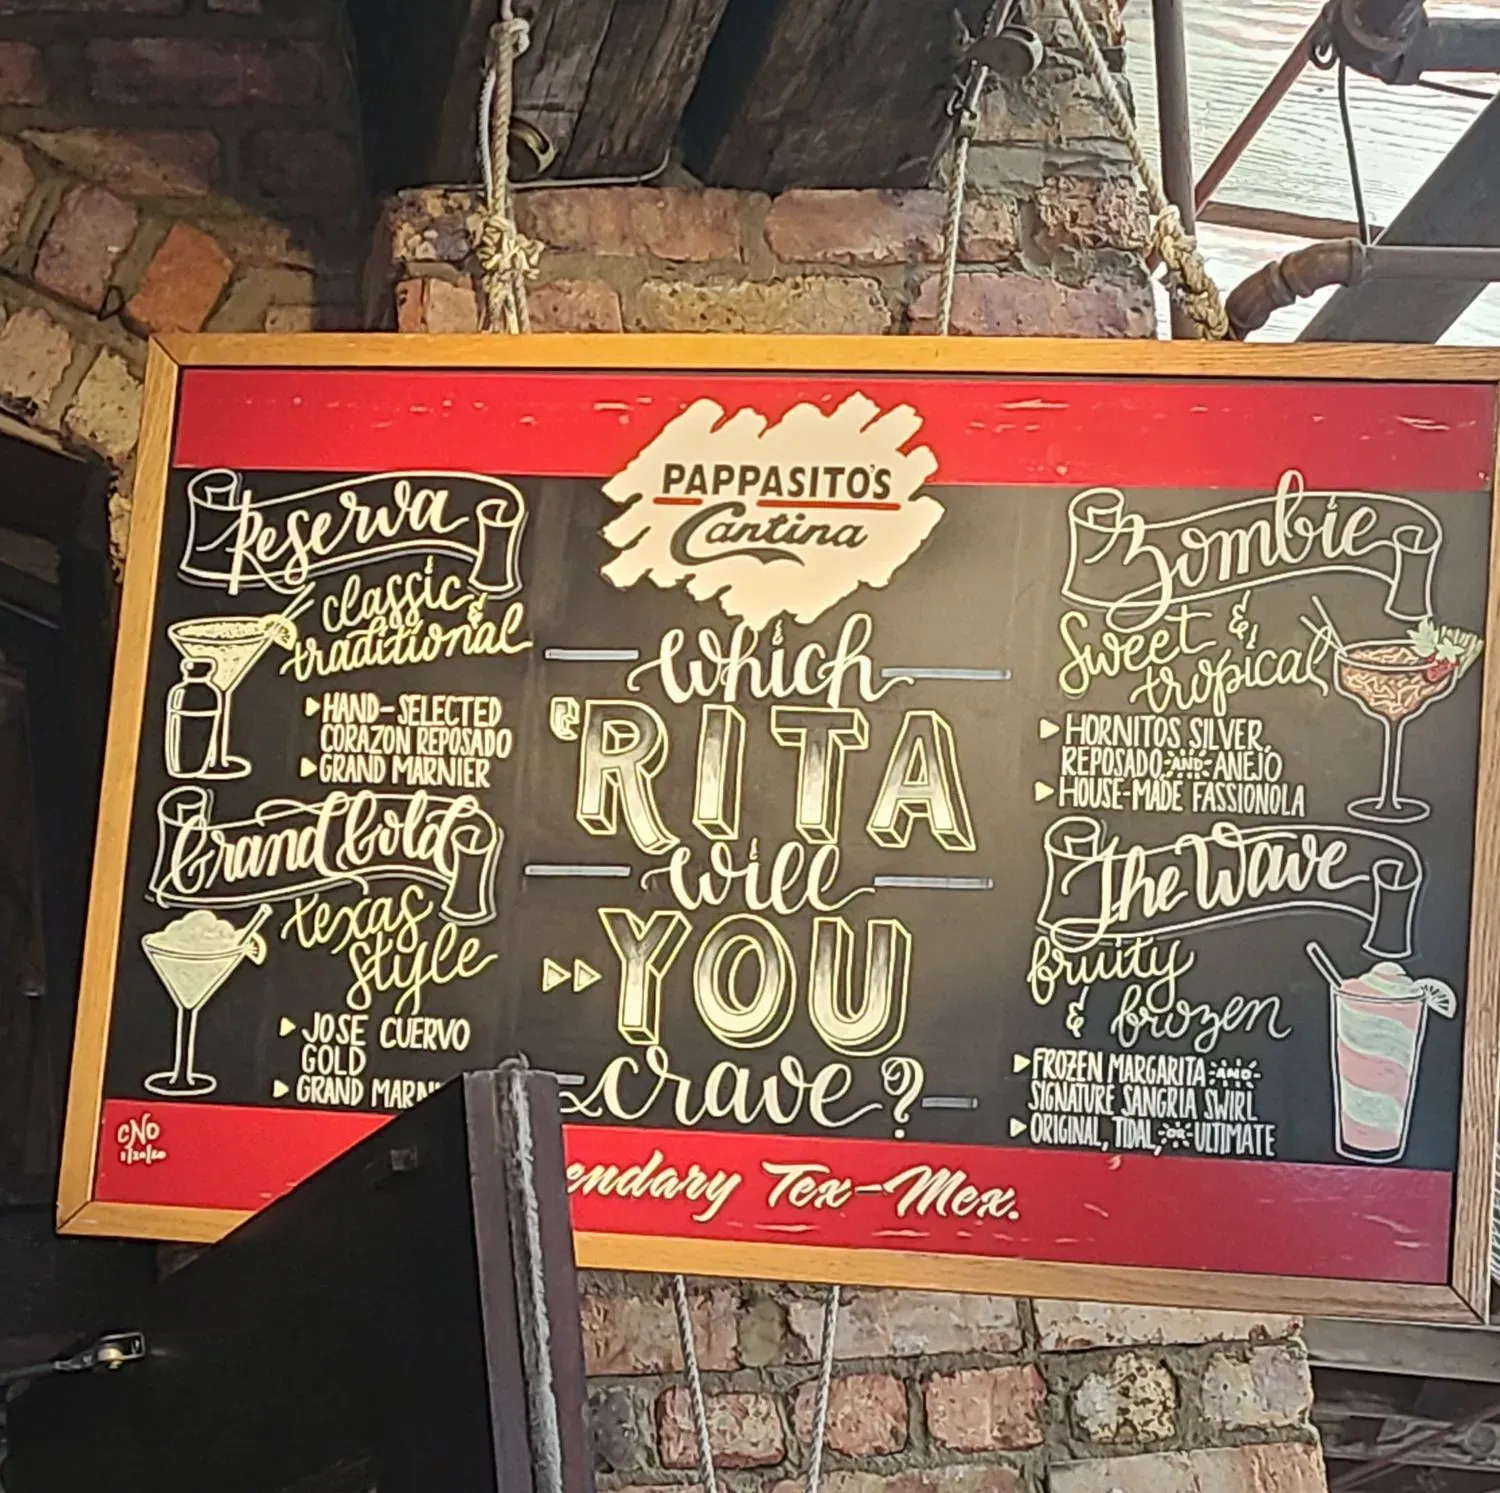 PAPPASITO'S
Cantina
Reserva
classic &
traditional
HAND-SELECTED
CORAZON REPOSADO
GRAND MARNIER
Grand Gold
texas
style
JOSE CUERVO
GOLD
GRAND MARN
CNO
1/20/20
Which
'RITA
will
YOU
crave?
Zombie
Sweet &
tropical
HORNITOS SILVER,
REPOSADO AND ANEJO
HOUSE-MADE FASSIONOLA
The Wave
fruity
& frozen
FROZEN MARGARITA AND
SIGNATURE SANGRIA SWIRL
ORIGINAL, TIDAL, OR ULTIMATE
endary Tex-Mex.